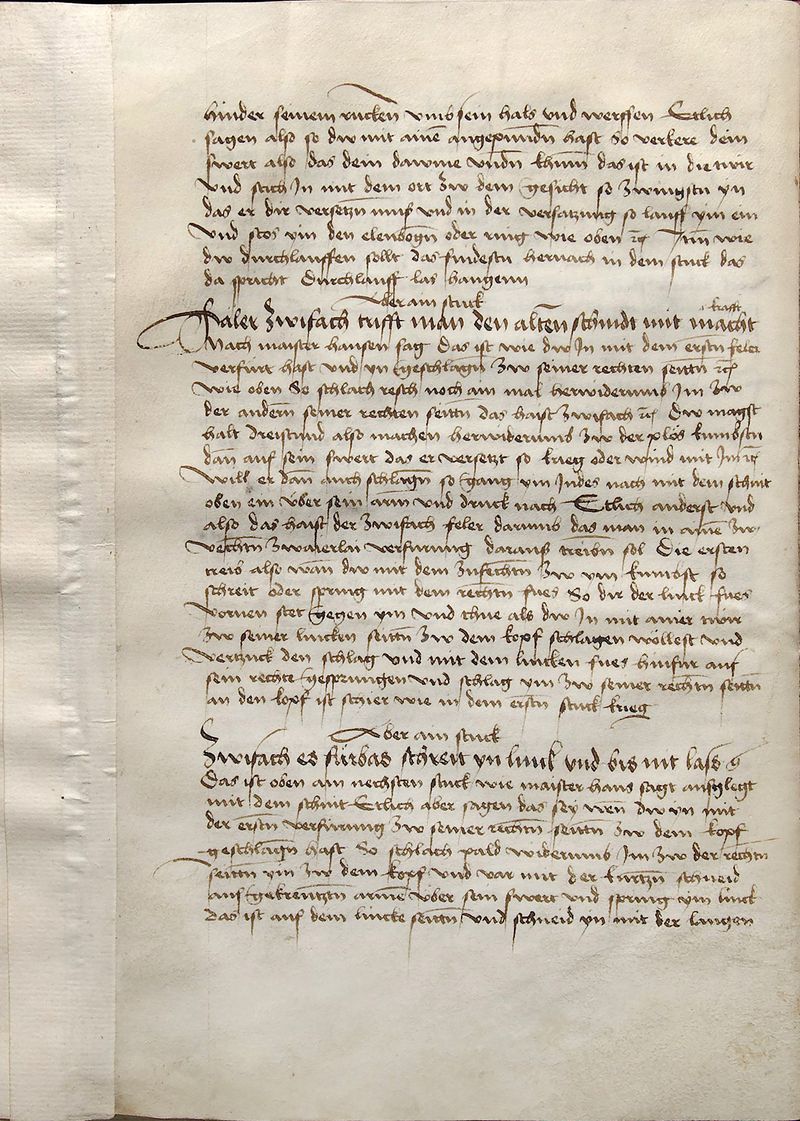 hinder seinem rucken vmb sein hals vnd werffen Etlich
sagen also so dw mit aine͂ angepundn̄ hast So verkere dein
swert also das dein dawme vndn̄ khum̄ das ist in die twir
vnd stich Jn mit dem ort zw dem gesicht so zwingstu yn
das er dir versetzn̄ mus vnd in der versatzung so lauff ym ein
vnd stos ym den elenbogn̄ oder ring wie oben ⁊c̄ Jtm̄ wie
dw durchlauffen sollt das findestu hernach in dem stuck das
da spricht Durchlauff las hangenn
Aber ain stuck
krafft
Faler zwifach trifft man den alten schnidt mit macht
Nach maister hansen sag Das ist wie dw Jn mit dem erstn̄ feler
verfurt hast vnd yn geschlagn̄ zw seiner rechten seittn̄ ⁊c̄
wie oben So schlach resch noch ain mal herwiderumb Jm zw
der andern̄ seiner rechten seittn̄ das haist zwifach ⁊c̄ Dw magst
halt dreistund also machen herwiderumb zw der plös kumbstu
dan̄ auf sein swert das er versetzt so krieg oder wind mit Jm ⁊c̄
Will er dan̄ auch schlagn̄ so gang ym Jndes nach mit dem schnit
oben ein vber sein arm vnd druck nach Etlich anderst vnd
also das haist der zwifach feler darumb das man in aine͂ zw
vechtn̄ zwaierlai verfurung daraus treibn̄ sol Die ersten
treib also wan̄ dw mit dem zufechtn̄ zw ym kumbst so
schreit oder spring mit dem rechtn̄ fues So dir der linck fues
vornen stet gegen ym vnd thue als dw Jn mit ainer twir
zw seiner lincken seittn̄ zw dem kopf schlagen wollest vnd
vertzuck den schlag vnd mit dem lincken fues hinfur auf
sein rechte gesprungen vnd schlag ym zw seiner rechtn̄ seittn̄
an den kopf ist schier wie in dem erstn̄ stuck krieg
Aber ain stuck
Zwifach es furbas schreit yn linck vnd bis nit lass
Das ist oben am nechsten stuck wie maister hans sagt ausglegt
mit dem schnit Etlich aber sagen das sey wen̄ dw yn mit
der erstn̄ verfurung zw seiner rechtn̄ seittn̄ zw dem kopf
geschlagn̄ hast So schlach pald widerumb Jm zw der rechtn̄
seittn̄ ym zw dem kopf vnd var mit der kurtzn̄ schneid
aus gekreutztn̄ arme͂ vber sein swert vnd spring ym linck
das ist auf dem lincke seittn̄ vnd schneid yn mit der langen